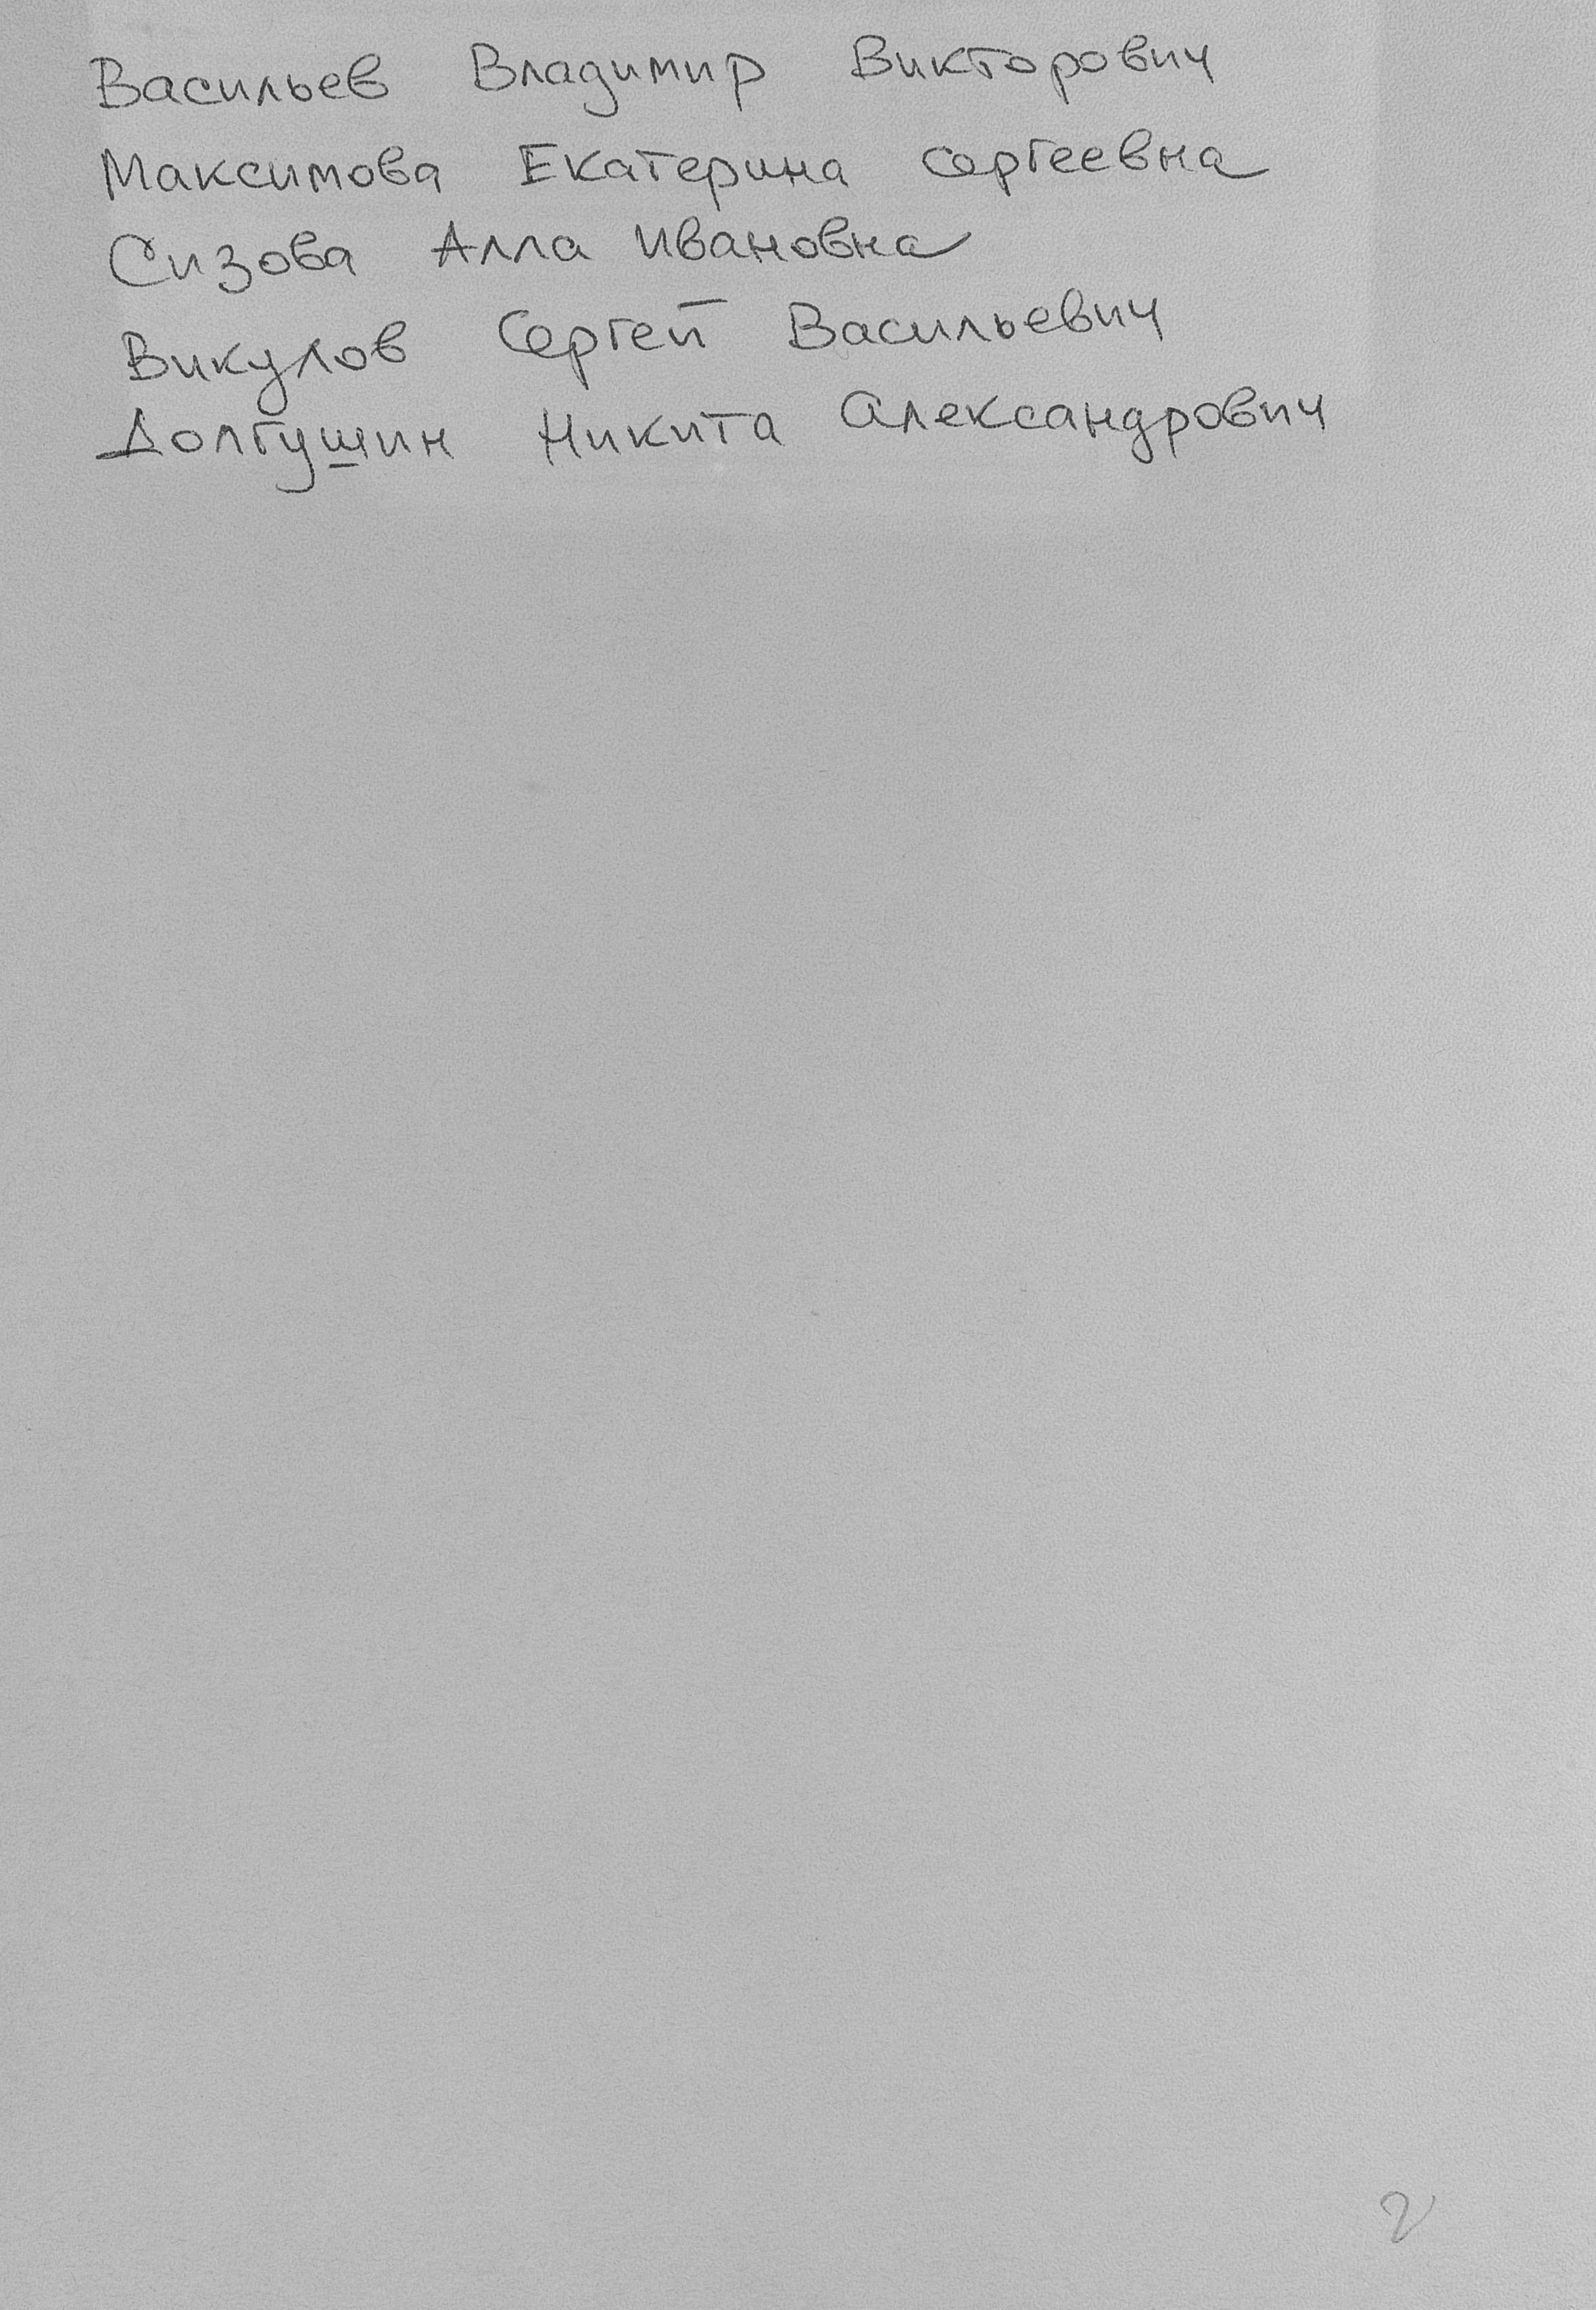 Васильев Владимир Викторович
Максимова Екатерина Сергеевна
Сизова Алла Ивановна
Викулов Сергей Васильевич
Долгушин Никита Александрович
2